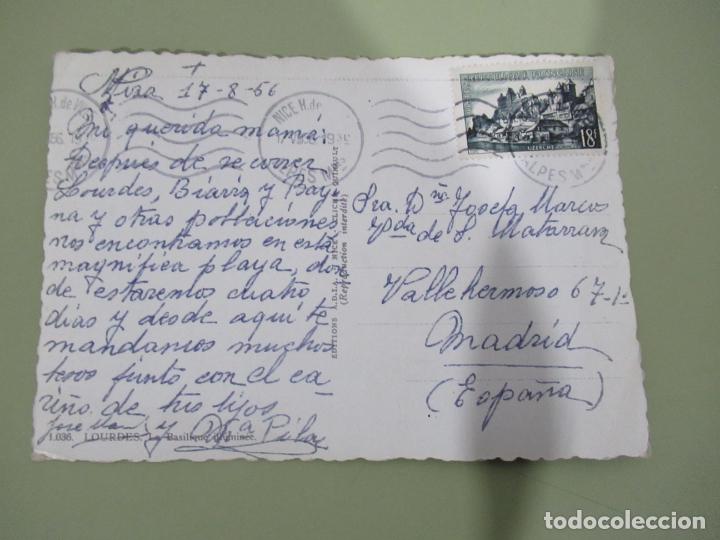 Niza 17-8-56
Mi querida mamá:
Después de recorrer
Lourdes, Biarriz y Bayo
na y otras poblaciones
nos encontramos en esta
magnifica playa, don
de estaremos cuatro
dias y desde aquí te
mandamos muchos
besos junto con el ca
riño de tus hijos
José y Mª Pilar
1.036. LOURDES. La Basilique illuminée.
NICE H. de
ALPES M
EDITIONS A.D.I.A. NICE
(Reproduction interdite)
UZERCHE
18F
Sra. Dña Josefa Marcos
Vda de S. Matarranz
Vallehermoso 67-1º
Madrid
(España)
todocoleccion
todocoleccion.net